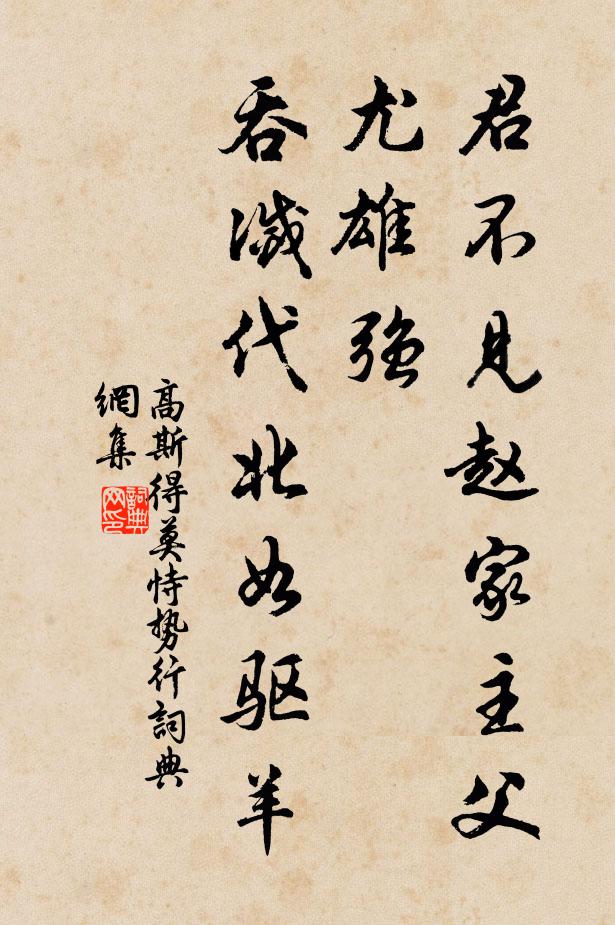 君不见赵家主父
尤雄强
吞滅代北如驱羊
高斯得莫恃势行詞典
網集
詞典
网印